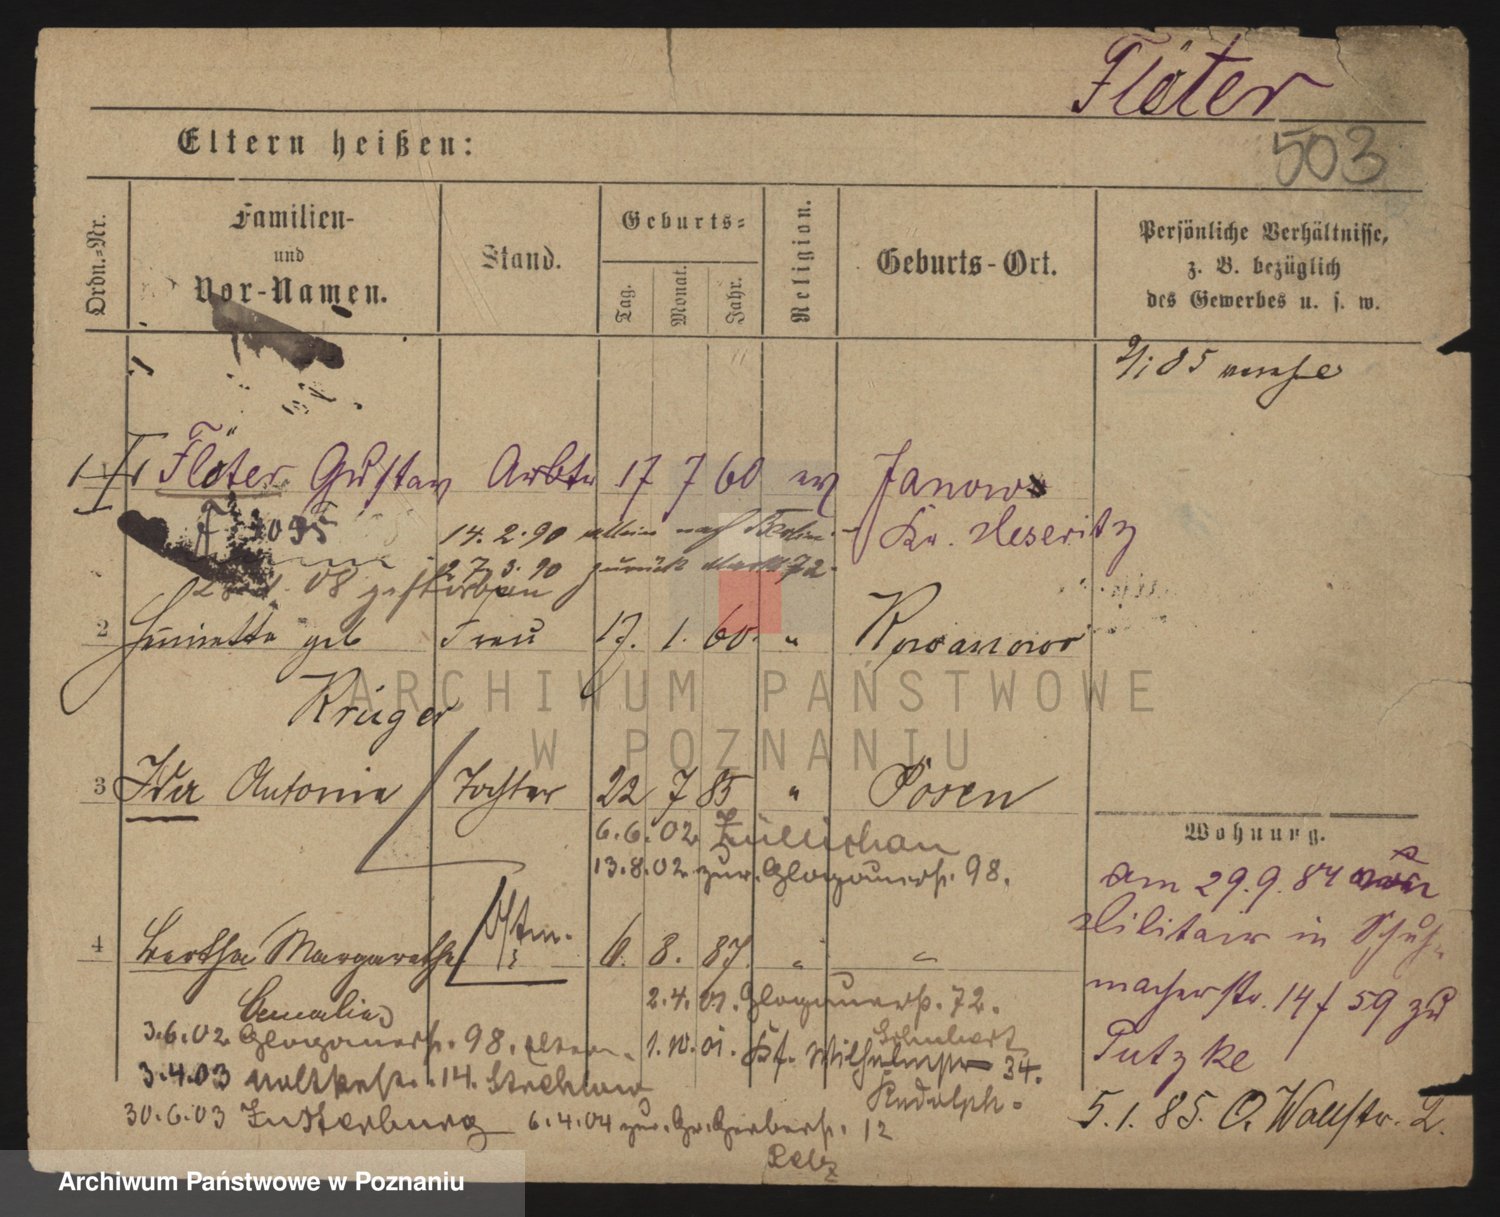 Flöter
503
Eltern heißen:
Ordn.-Nr.
Familien-
und
Vor-Namen.
Stand.
Geburts-
Tag.
Monat.
Jahr.
Religion.
Geburts-Ort.
Persönliche Verhältnisse,
z. B. bezüglich
des Gewerbes u. s. w.
1 Flöter Gustav Arbtr 17 7 60 ev Janowo
Kr. Meseritz
14. 2. 90 allein nach Berlin
27. 3. 90 zurück
08 gestorben
2 Henriette geb Frau 17. 1. 60. " Rowanowo
Krüger
3 Ida Antonie Tochter 22 7 85 " Posen
6.6.02 Züllichau
13.8.02 zur. Glogauerst. 98.
4 Bertha Margarethe 6. 8. 87. " "
Amalie
2.4.01. Glogauerst. 72.
3.6.02 Glogauerst. 98. Eltern.
1.10.01. Wilhelmstr 34.
Schubert
3.4.03 14. Strehlow
Rudolph.
30.6.03 Insterburg 6.4.04 zur. Gr. Gerberst. 12
Pelz
Wohnung.
am 29.9.84 vom
Militair in Schuh-
macherstr. 14 f 59 zu
Putzke
5.1.85. O. Wallstr. 2.
ARCHIWUM PAŃSTWOWE
W POZNANIU
Archiwum Państwowe w Poznaniu